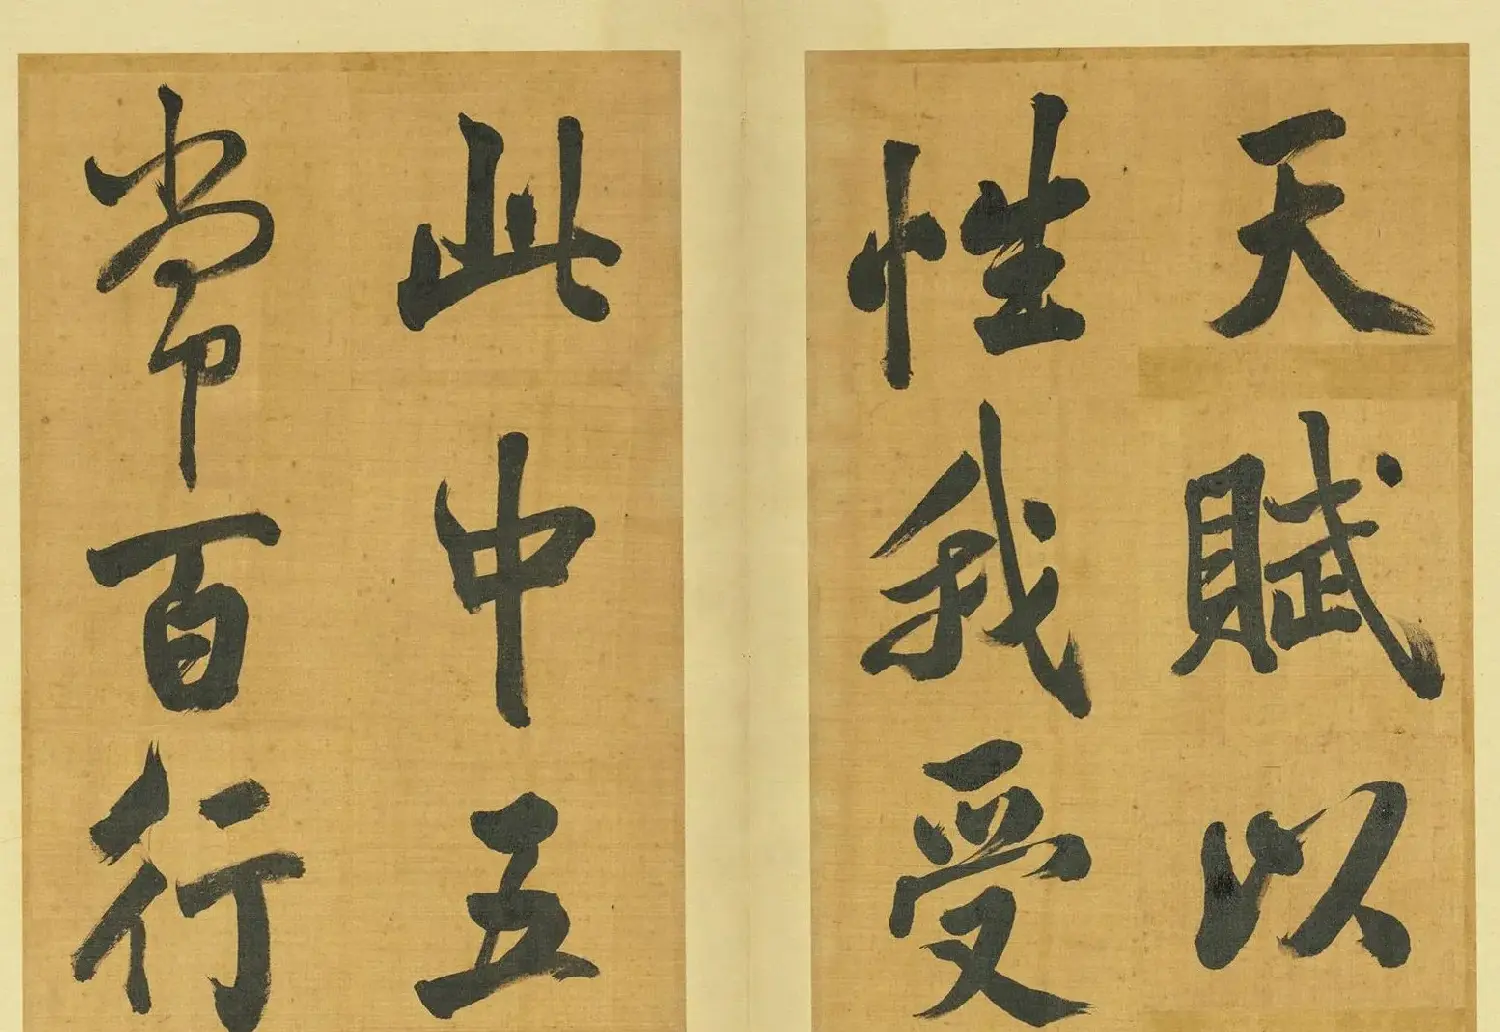 天賦以
性我受
此中五
常百行